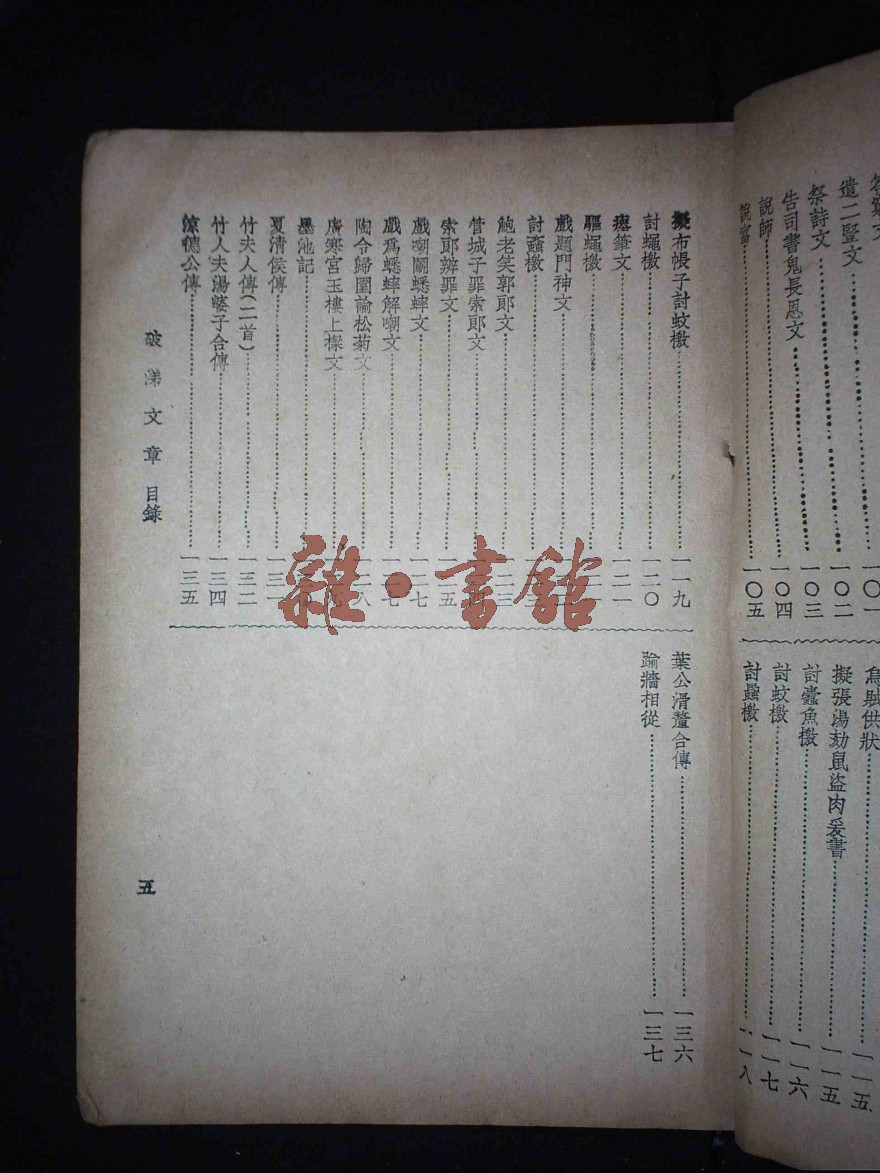 遣二豎文 一〇二
祭詩文 一〇三
告司書鬼長恩文 一〇四
說師 一〇四
說富 一〇五
供狀 一一五
擬張湯劾鼠盜肉爰書 一一五
討蠹魚檄 一一六
討蚊檄 一一七
討蝨檄 一一八
擬布帳子討蚊檄 一一九
討蠅檄 一二〇
瘞筆文 一二一
驅蠅檄
戲題門神文
討蝨檄
鮑老笑郭郎文
管城子罪索郎文
索郎辨罪文
戲嘲鬭蟋蟀文 一二七
戲爲蟋蟀解嘲文
陶令歸園諭松菊文
廣寒宮玉樓上樑文
墨池記
夏清侯傳
竹夫人傳(二首) 一三二
竹人夫湯婆子合傳 一三四
涼德公傳 一三五
葉公滑釐合傳 一三六
踰牆相從 一三七
破涕文章 目錄
五
雜·書館